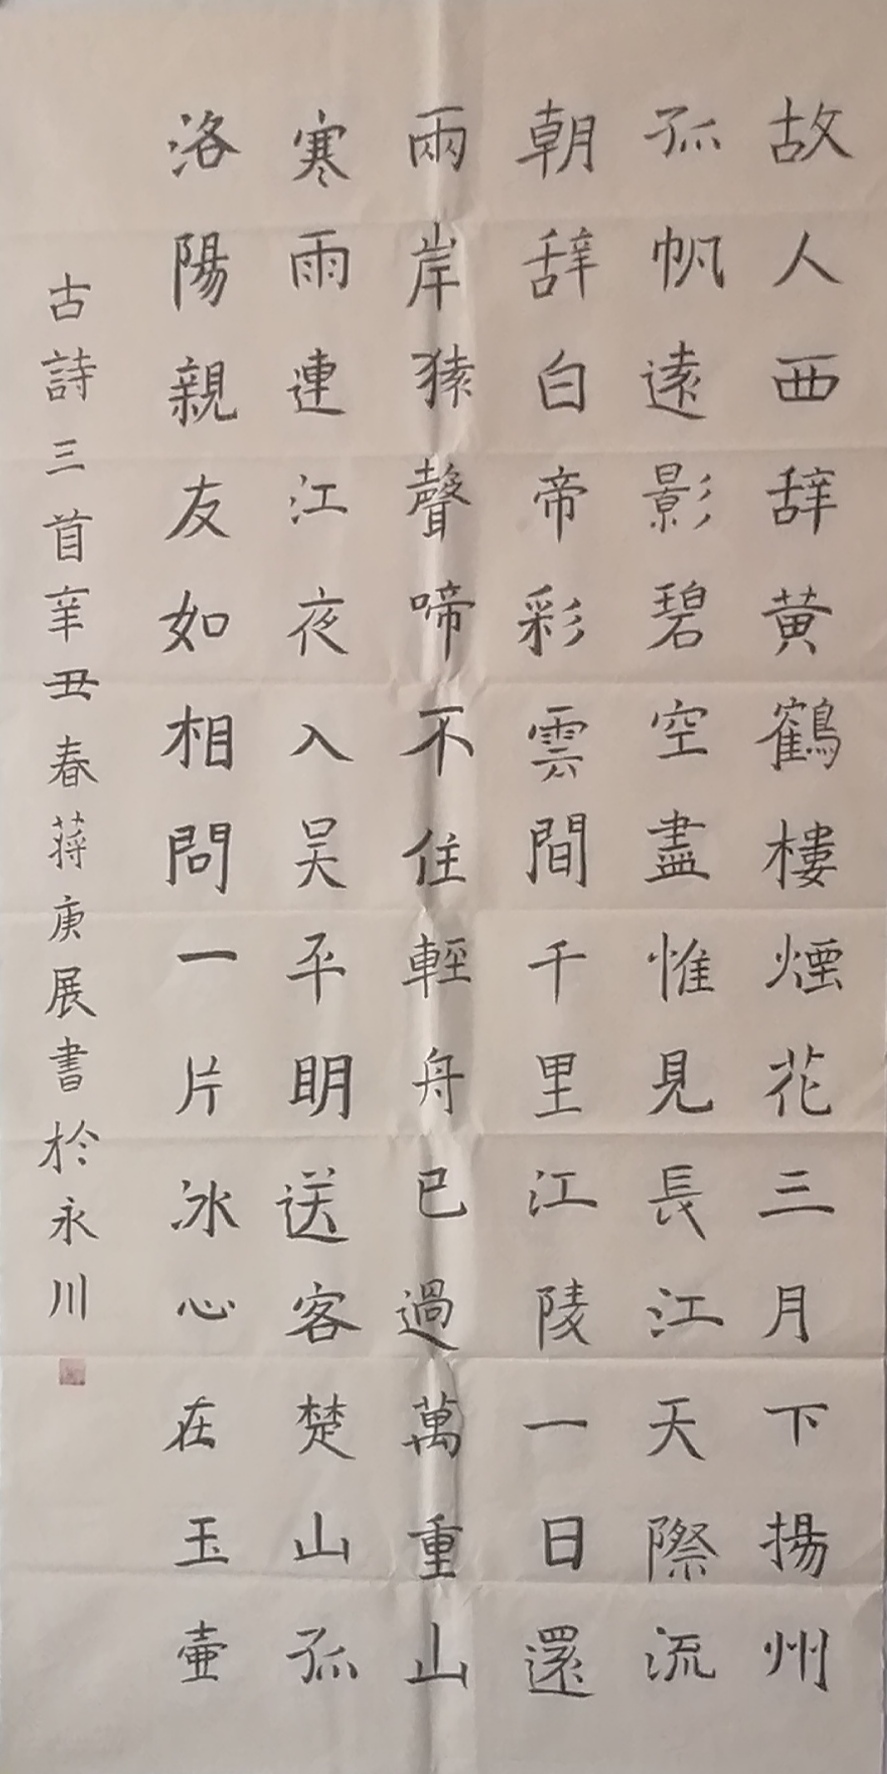 故人西辞黄鶴樓煙花三月下揚州
孤帆遠影碧空盡惟見長江天際流
朝辞白帝彩雲間千里江陵一日還
兩岸猿聲啼不住輕舟已過萬重山
寒雨連江夜入吴平明送客楚山孤
洛陽親友如相問一片冰心在玉壷
古詩三首辛丑春蒋庚展書於永川